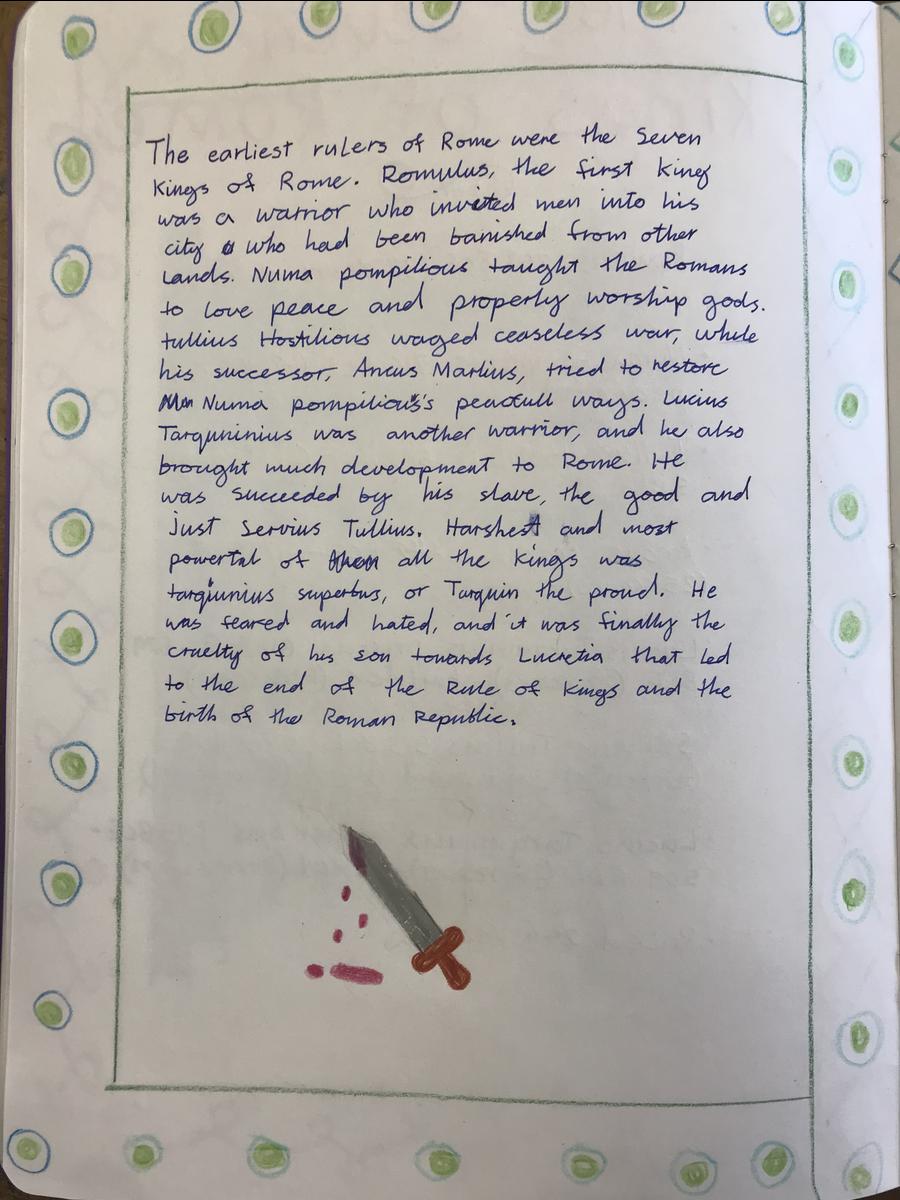 The earliest rulers of Rome were the Seven
Kings of Rome. Romulus, the first King
was a warrior who invited men into his
city who had been banished from other
lands. Numa pompilious taught the Romans
to love peace and properly worship gods.
tullius Hostilious waged ceaseless war, while
his successor, Ancus Martius, tried to restore
Numa pompilious's peacfull ways. Lucius
Tarquninius was another warrior, and he also
brought much development to Rome. He
was succeeded by his slave, the good and
just Servius Tullius. Harshest and most
powerful of all the Kings was
tarquinius superbus, or Tarquin the proud. He
was feared and hated, and it was finally the
cruelty of his son towards Lucretia that led
to the end of the Rule of Kings and the
birth of the Roman Republic.